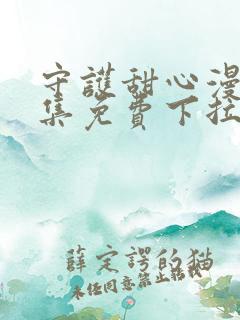 守護甜心漫
集免費下拉
薛定諤的猫
未经同意禁止转载